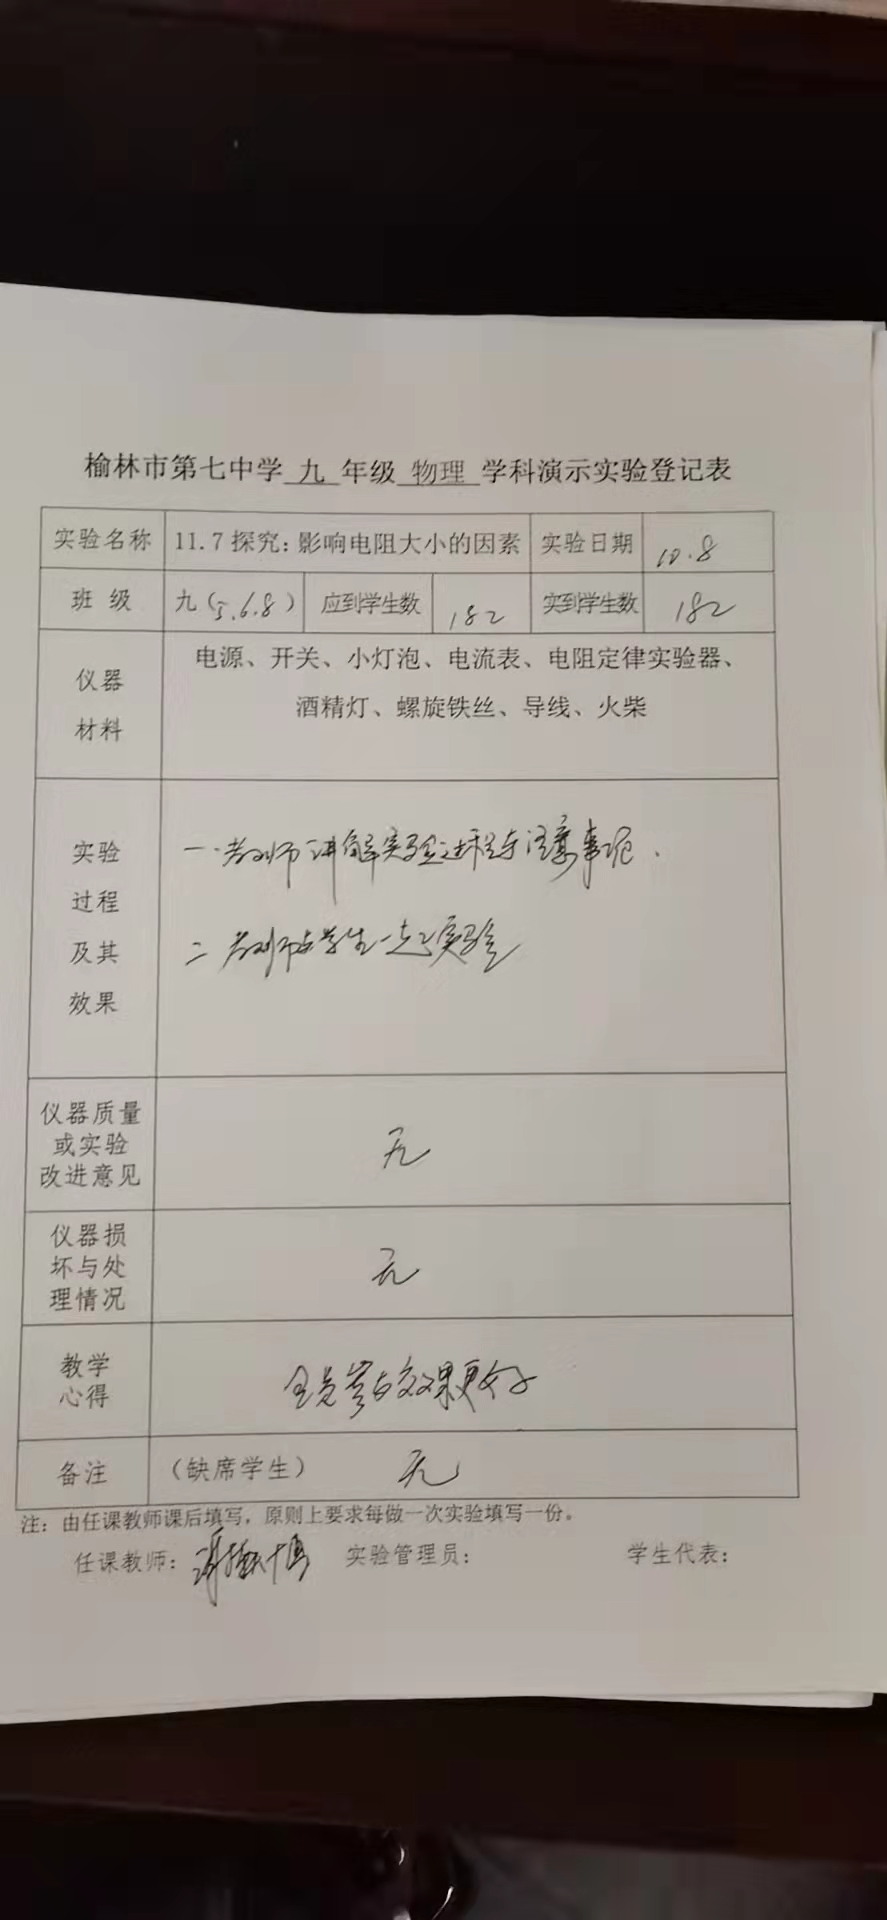 榆林市第七中学 九 年级 物理 学科演示实验登记表
实验名称 11.7 探究：影响电阻大小的因素 实验日期 10.8
班 级 九（5.6.8） 应到学生数 182 实到学生数 182
仪器
材料
电源、开关、小灯泡、电流表、电阻定律实验器、
酒精灯、螺旋铁丝、导线、火柴
实验
过程
及其
效果
一.老师讲解实验过程与注意事项.
二 老师与学生一起实验
仪器质量
或实验
改进意见
无
仪器损
坏与处
理情况
无
教学
心得
全员参与效果更好
备注 （缺席学生） 无
注：由任课教师课后填写，原则上要求每做一次实验填写一份。
任课教师： 实验管理员： 学生代表：